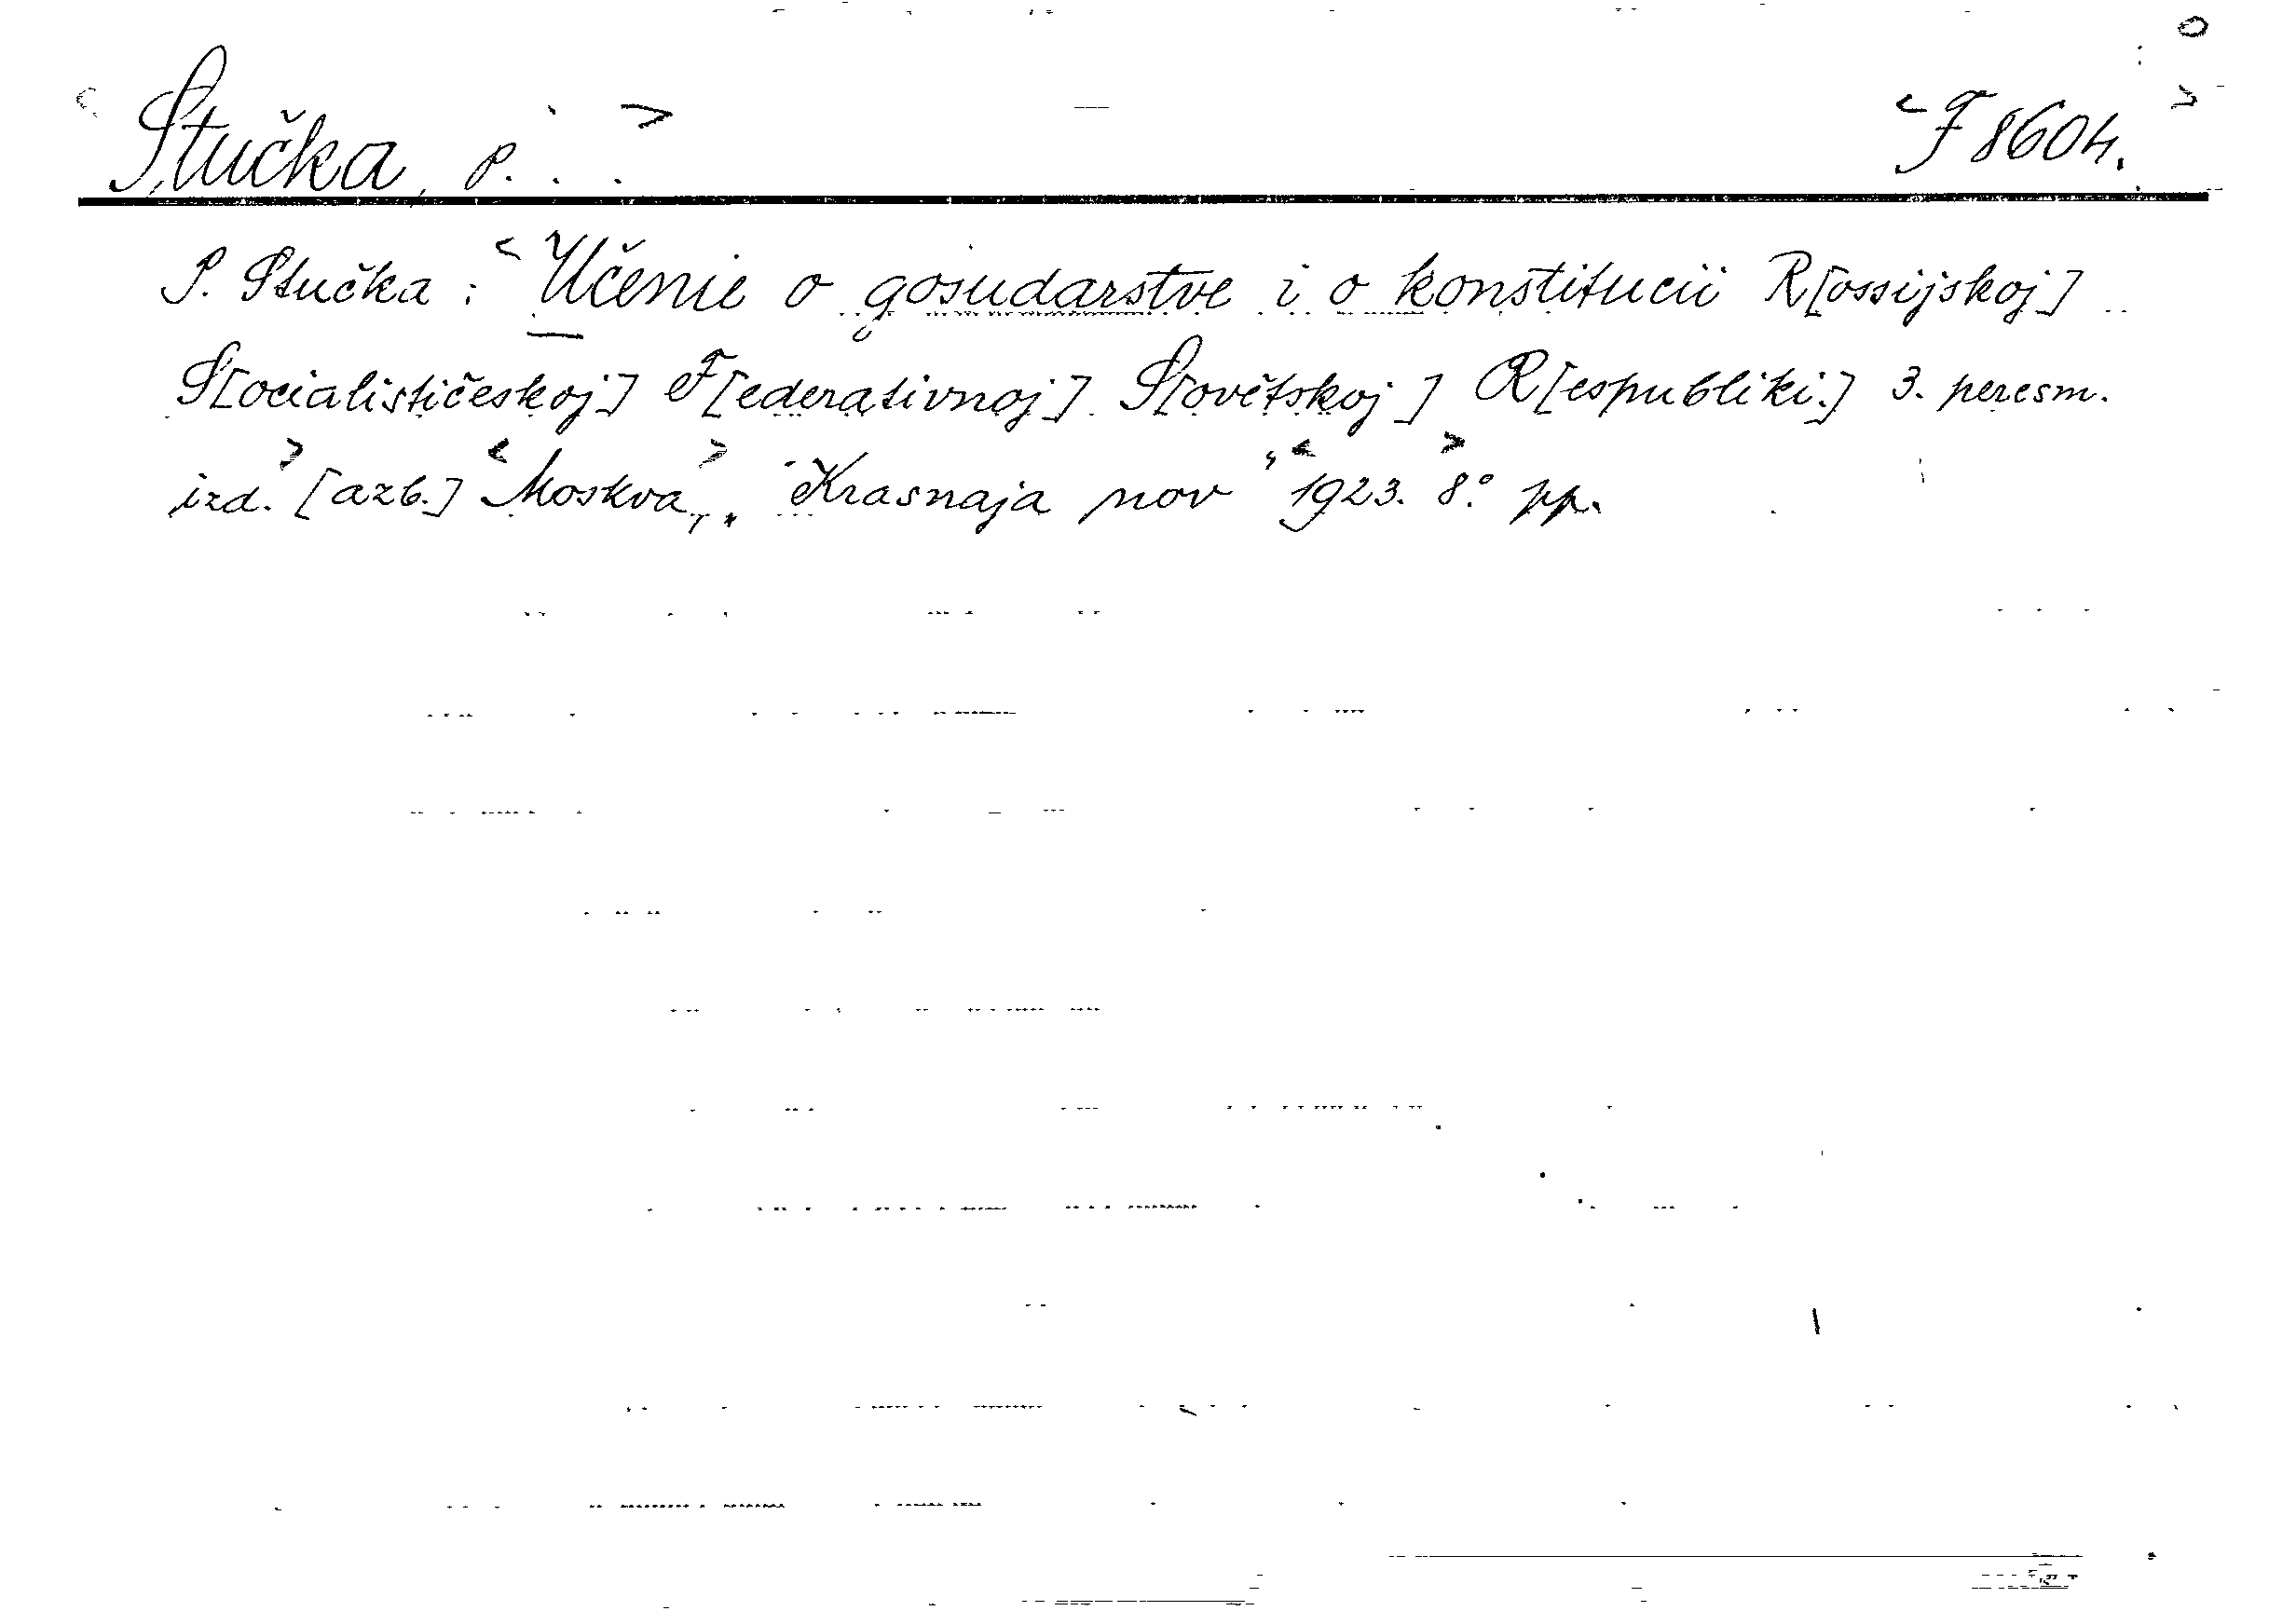 Stučka, P. . . F 8604.
P. Stučka: Učenie o gosudarstve i o konstitucii R[ossijskoj]
S[ocialističeskoj] F[ederativnoj] S[ovětskoj] R[espubliki.] 3. peresm.
izd. [azb.] Moskva, „Krasnaja nov" 1923. 8° pp.